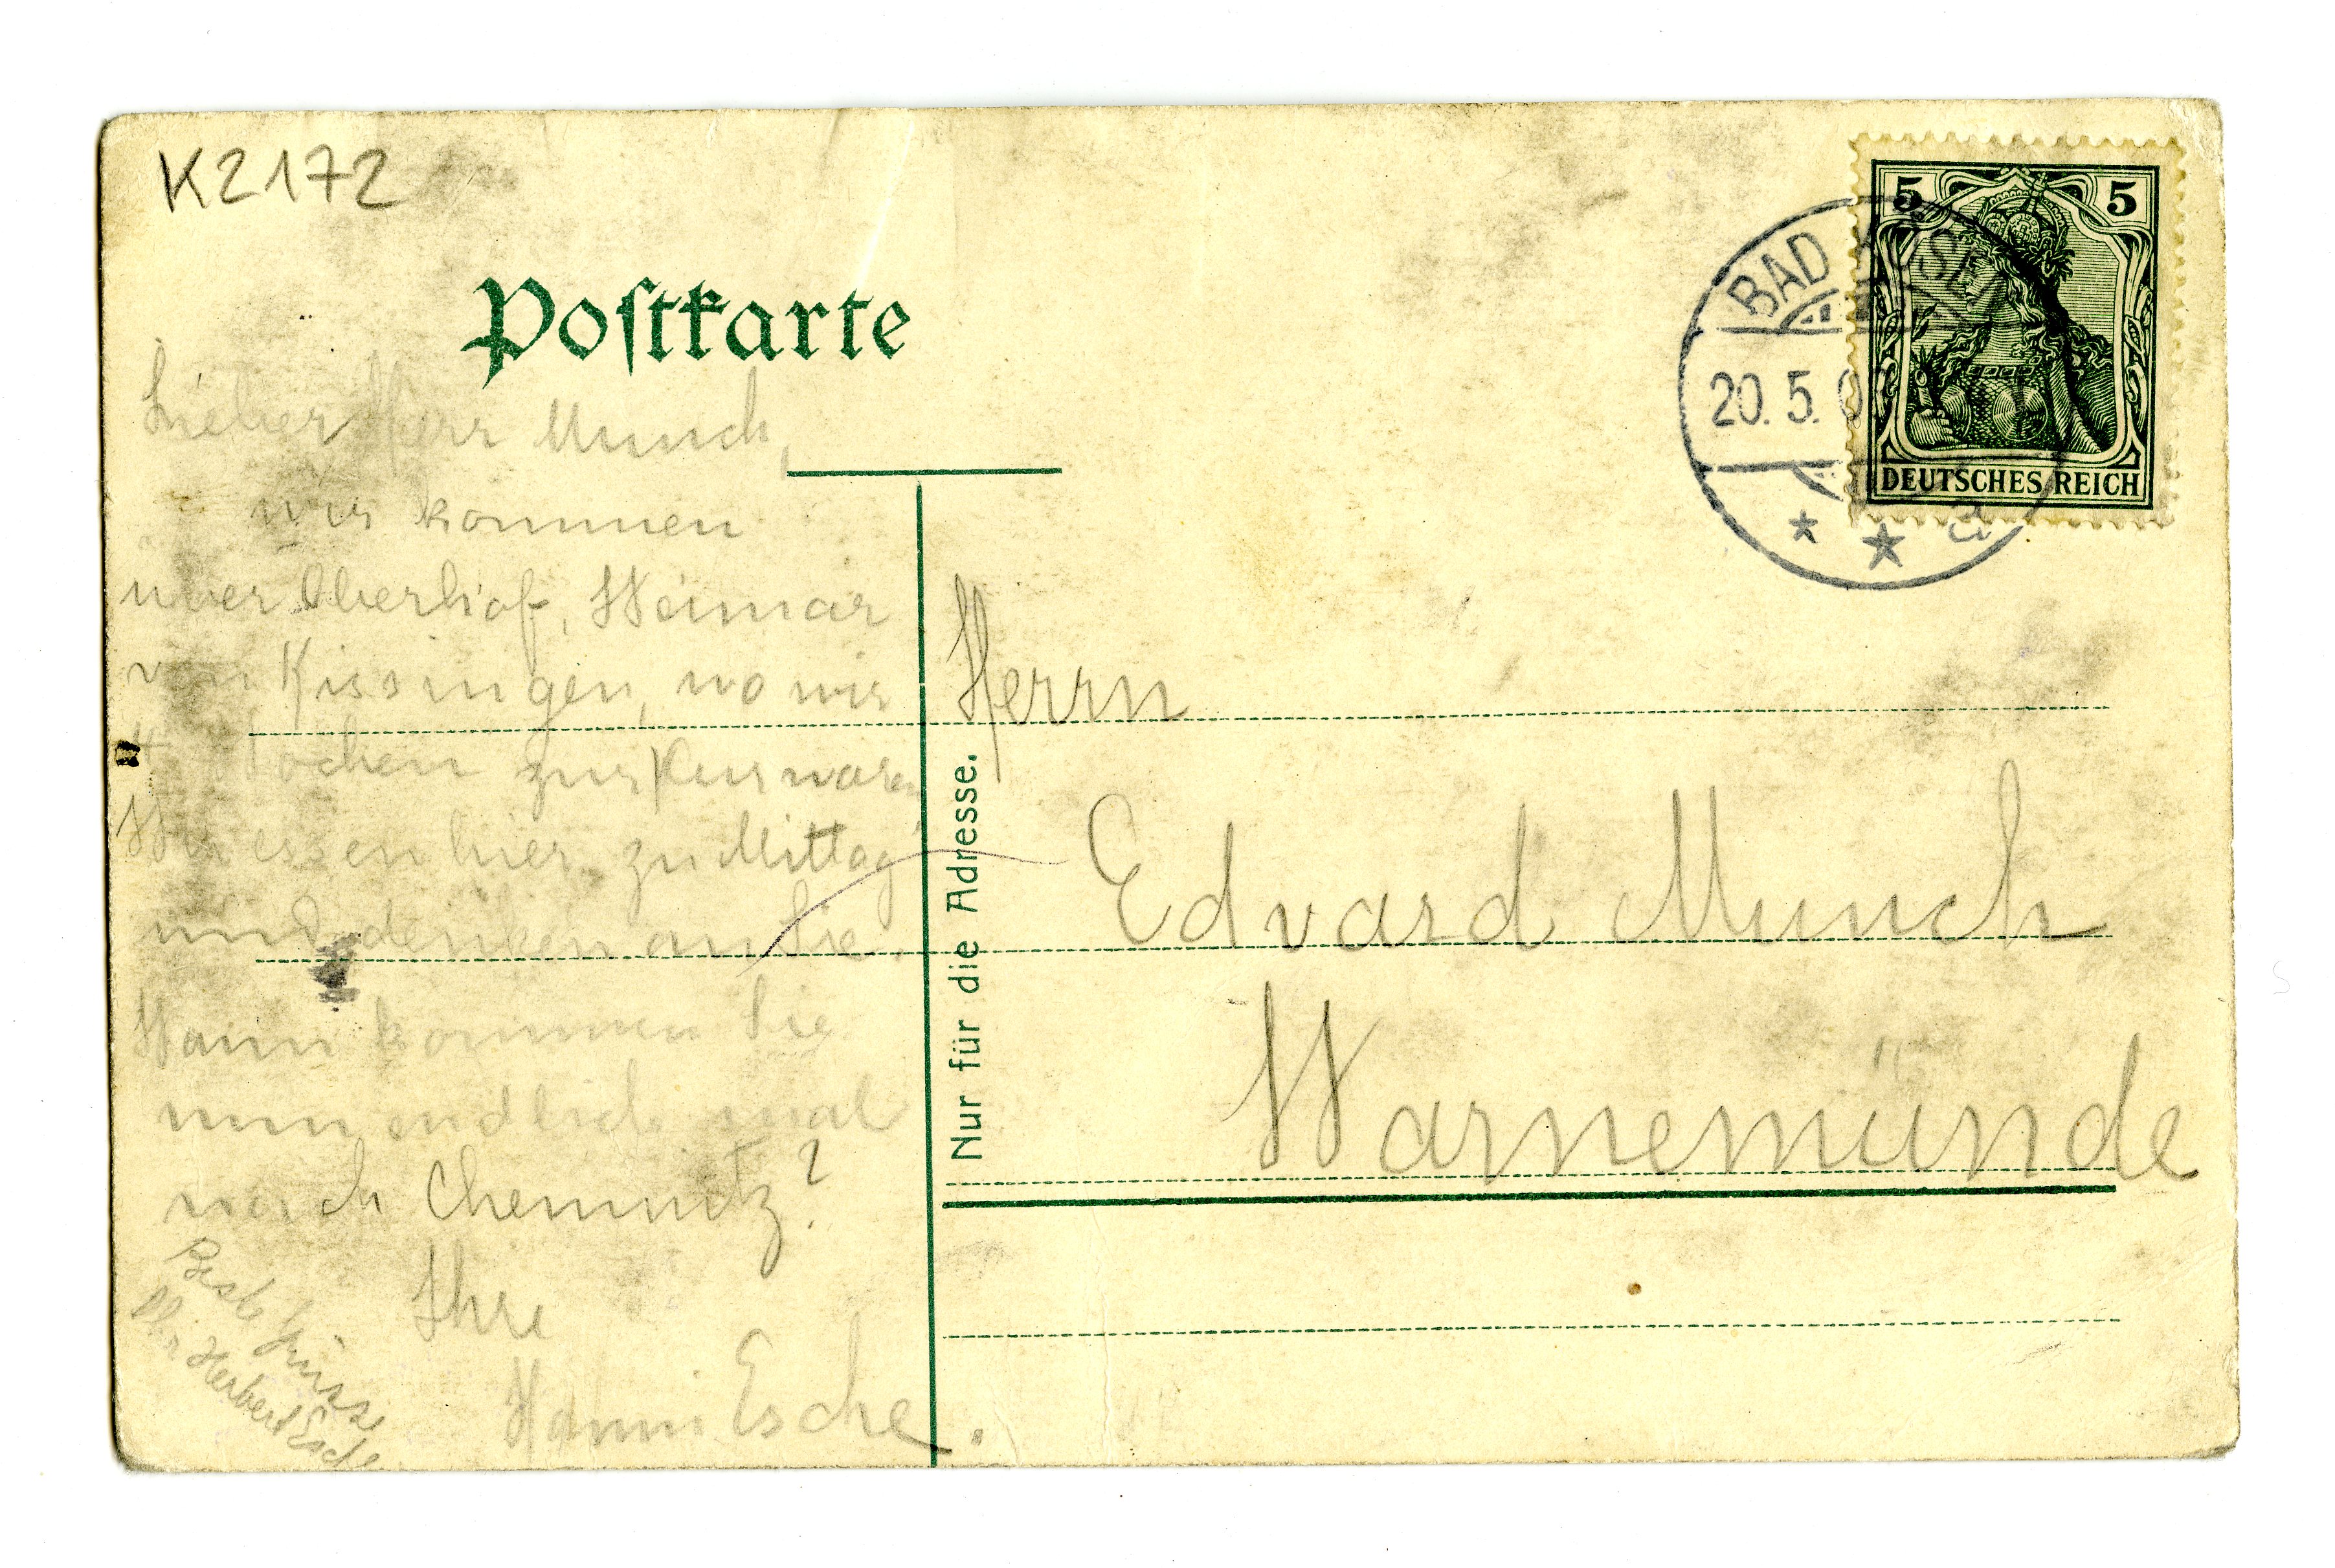 K2172
Postkarte
5 5
BAD KÖSEN
20. 5. 0
DEUTSCHES REICH
* * a
Lieber Herr Munch,
wir kommen
über Oberhof, Weimar
von Kissingen, wo wir
4 Wochen zur Kur waren
Wir essen hier zu Mittag
und denken an Sie.
Wann kommen Sie
nun endlich mal
nach Chemnitz?
Ihre
Hanni Esche.
Beste Grüsse
Ihr Herbert Esche
Nur für die Adresse.
Herrn
Edvard Munch
Warnemünde